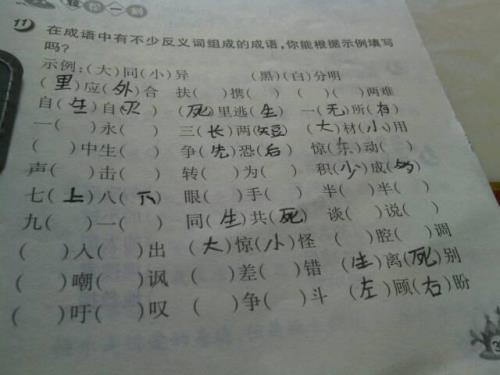 11 在成语中有不少反义词组成的成语,你能根据示例填写
吗?
示例:(大)同(小)异 (黑)(白)分明
(里)应(外)合 扶( )携( ) ( )( )两难
自(生)自(灭) (死)里逃(生) 一(无)所(有)
一( )永( ) 三(长)两(短) (大)材(小)用
( )中生( ) 争(先)恐(后) 惊(东)动( )
声( )击( ) 转( )为( ) 积(少)成(多)
七(上)八(下) 眼( )手( ) 半( )半( )
九( )一( ) 同(生)共(死) 谈( )说( )
( )入( )出 (大)惊(小)怪 ( )腔( )调
( )嘲( )讽 ( )差( )错 (生)离(死)别
( )吁( )叹 ( )争( )斗 (左)顾(右)盼